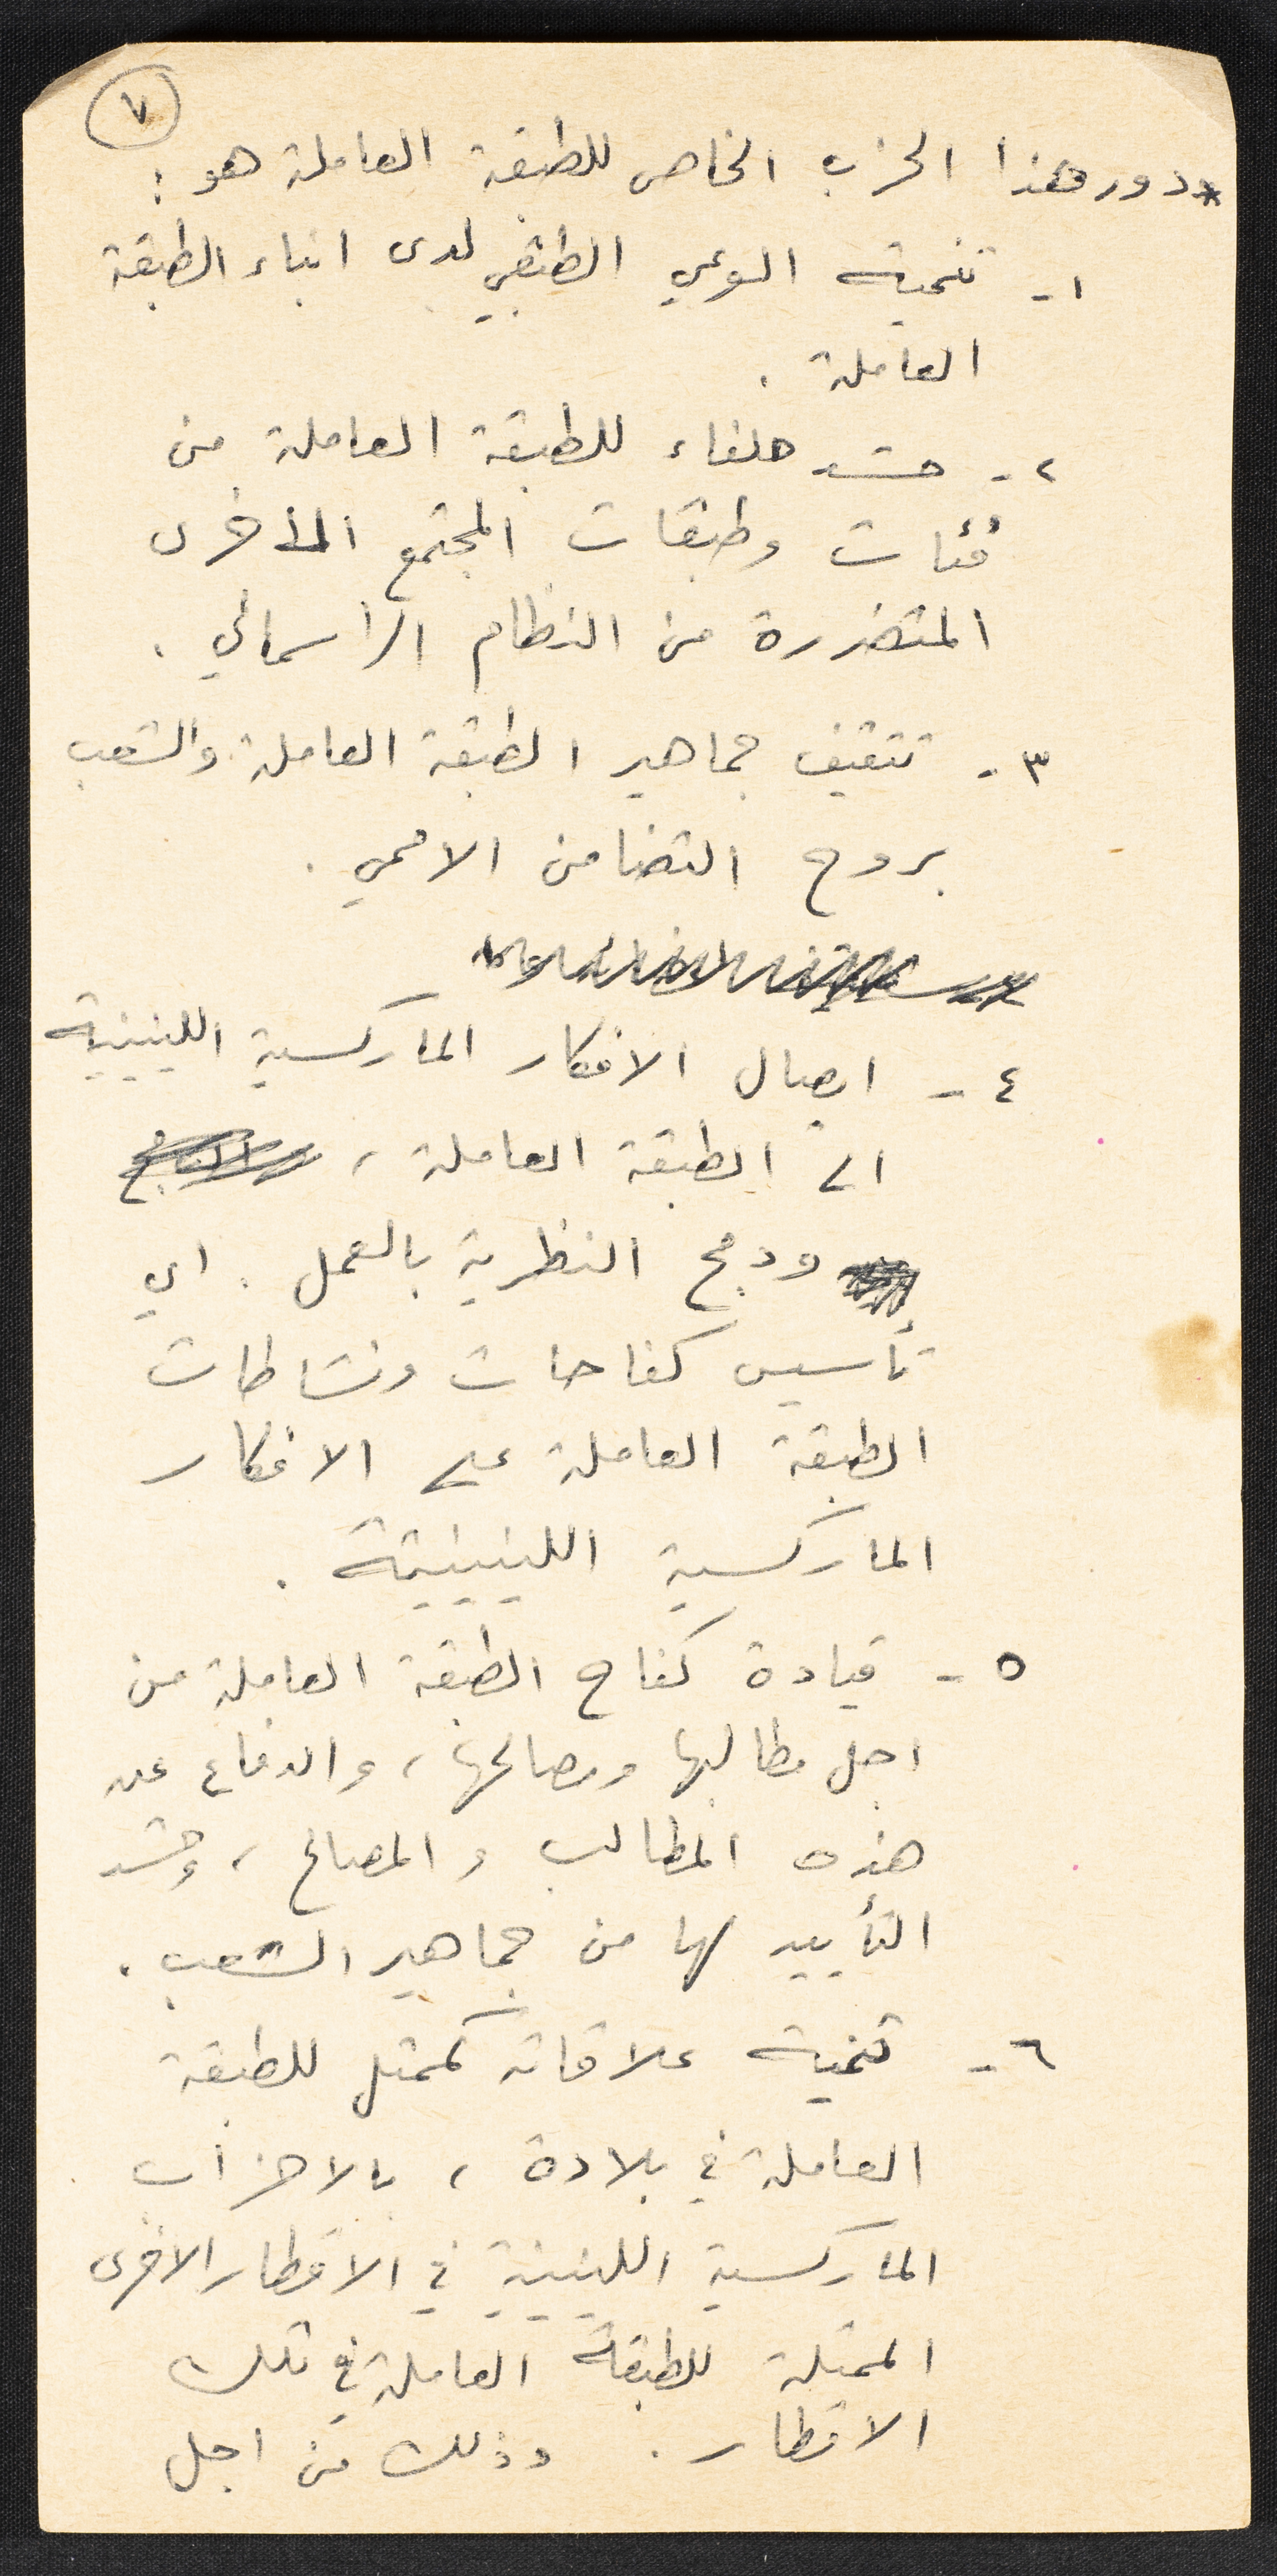 ٧
* دور هذا الحزب الخاص للطبقة العاملة هو :
١ - تنمية الوعي الطبقي لدى ابناء الطبقة
العاملة .
٢ - حشد حلفاء للطبقة العاملة من
فئات وطبقات المجتمع الأخرى
المتضررة من النظام الراسمالي .
٣ - تثقيف جماهير الطبقة العاملة والشعب
بروح التضامن الاممي .
٤ - ايصال الافكار الماركسية اللينينية
الى الطبقة العاملة ،
ودمج النظرية بالعمل . اي
تأسيس كفاحات ونشاطات
الطبقة العاملة على الافكار
الماركسية اللينينية .
٥ - قيادة كفاح الطبقة العاملة من
اجل مطالبها ومصالحها ، والدفاع عن
هذه المطالب والمصالح ، وحشد
التأييد لها من جماهير الشعب .
٦ - تنمية علاقاته كممثل للطبقة
العاملة في بلاده ، بالاحزاب
الماركسية اللينينية في الاقطار الاخرى
الممثلة للطبقة العاملة في تلك
الاقطار . وذلك من اجل